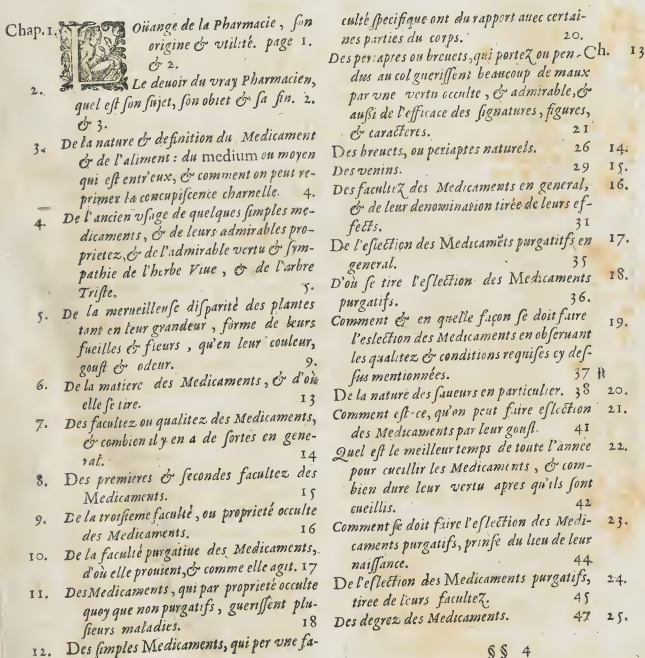 Chap. 1. LOüange de la Pharmacie, son
origine & vtilité. page 1.
& 2.
2. Le deuoir du vray Pharmacien,
quel est son sujet, son obiet & sa fin. 2.
& 3.
3. De la nature & definition du Medicament
& de l'aliment : du medium ou moyen
qui est entr'eux, & comment on peut re-
primer la concupiscence charnelle. 4.
4. De l'ancien vsage de quelques simples me-
dicaments, & de leurs admirables pro-
prietez, & de l'admirable vertu & sym-
pathie de l'herbe Viue, & de l'arbre
Triste. 5.
5. De la merueilleuse disparité des plantes
tant en leur grandeur, forme de leurs
fueilles & fleurs, qu'en leur couleur,
goust & odeur. 9.
6. De la matiere des Medicaments, & d'où
elle se tire. 13
7. Des facultez ou qualitez des Medicaments,
& combien il y en a de sortes en gene-
ral. 14
8. Des premieres & secondes facultez des
Medicaments. 15
9. De la troisieme faculté, ou proprieté occulte
des Medicaments. 16
10. De la faculté purgatiue des Medicaments,
d'où elle prouient, & comme elle agit. 17
11. Des Medicaments, qui par proprieté occulte
quoy que non purgatifs, guerissent plu-
sieurs maladies. 18
12. Des simples Medicaments, qui per vne fa-
culté specifique ont du rapport auec certai-
nes parties du corps. 20.
Des periaptes ou breuets, qui portez ou pen- Ch. 13
dus au col guerissent beaucoup de maux
par vne vertu occulte, & admirable, &
aussi de l'efficace des signatures, figures,
& caracteres. 21
Des breuets, ou periaptes naturels. 26 14.
Des venins. 29 15.
Des facultez des Medicaments en general, 16.
& de leur denomination tirée de leurs ef-
fects. 31
De l'eslection des Medicamẽts purgatifs en 17.
general. 35
D'où se tire l'eslection des Medicaments 18.
purgatifs. 36.
Comment & en quelle façon se doit faire 19.
l'eslection des Medicaments en obseruant
les qualitez & conditions requises cy des-
sus mentionnées. 37
De la nature des saueurs en particulier. 38 20.
Comment est-ce, qu'on peut faire eslection 21.
des Medicaments par leur goust. 41
Quel est le meilleur temps de toute l'année 22.
pour cueillir les Medicaments, & com-
bien dure leur vertu apres qu'ils sont
cueillis. 42
Comment se doit faire l'eslection des Medi- 23.
caments purgatifs, prinse du lieu de leur
naissance. 44
De l'eslection des Medicaments purgatifs, 24.
tiree de leurs facultez. 45
Des degrez des Medicaments. 47 25.
§§ 4